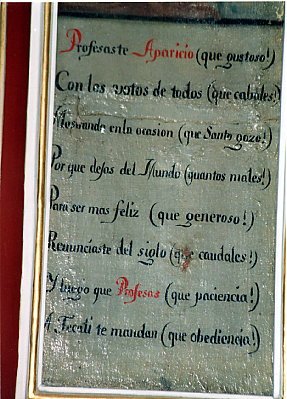 Profesaste Aparicio (que gustoso!)
Con los votos de todos (que cabales!)
Mostrando en la ocasion (que Santo gozo!)
Por que dejas del Mundo (quantos males!)
Para ser mas feliz (que generoso!)
Renunciaste del siglo (que caudales!)
Y luego que Profesas (que paciencia!)
A Tecali te mandan (que obediencia!)